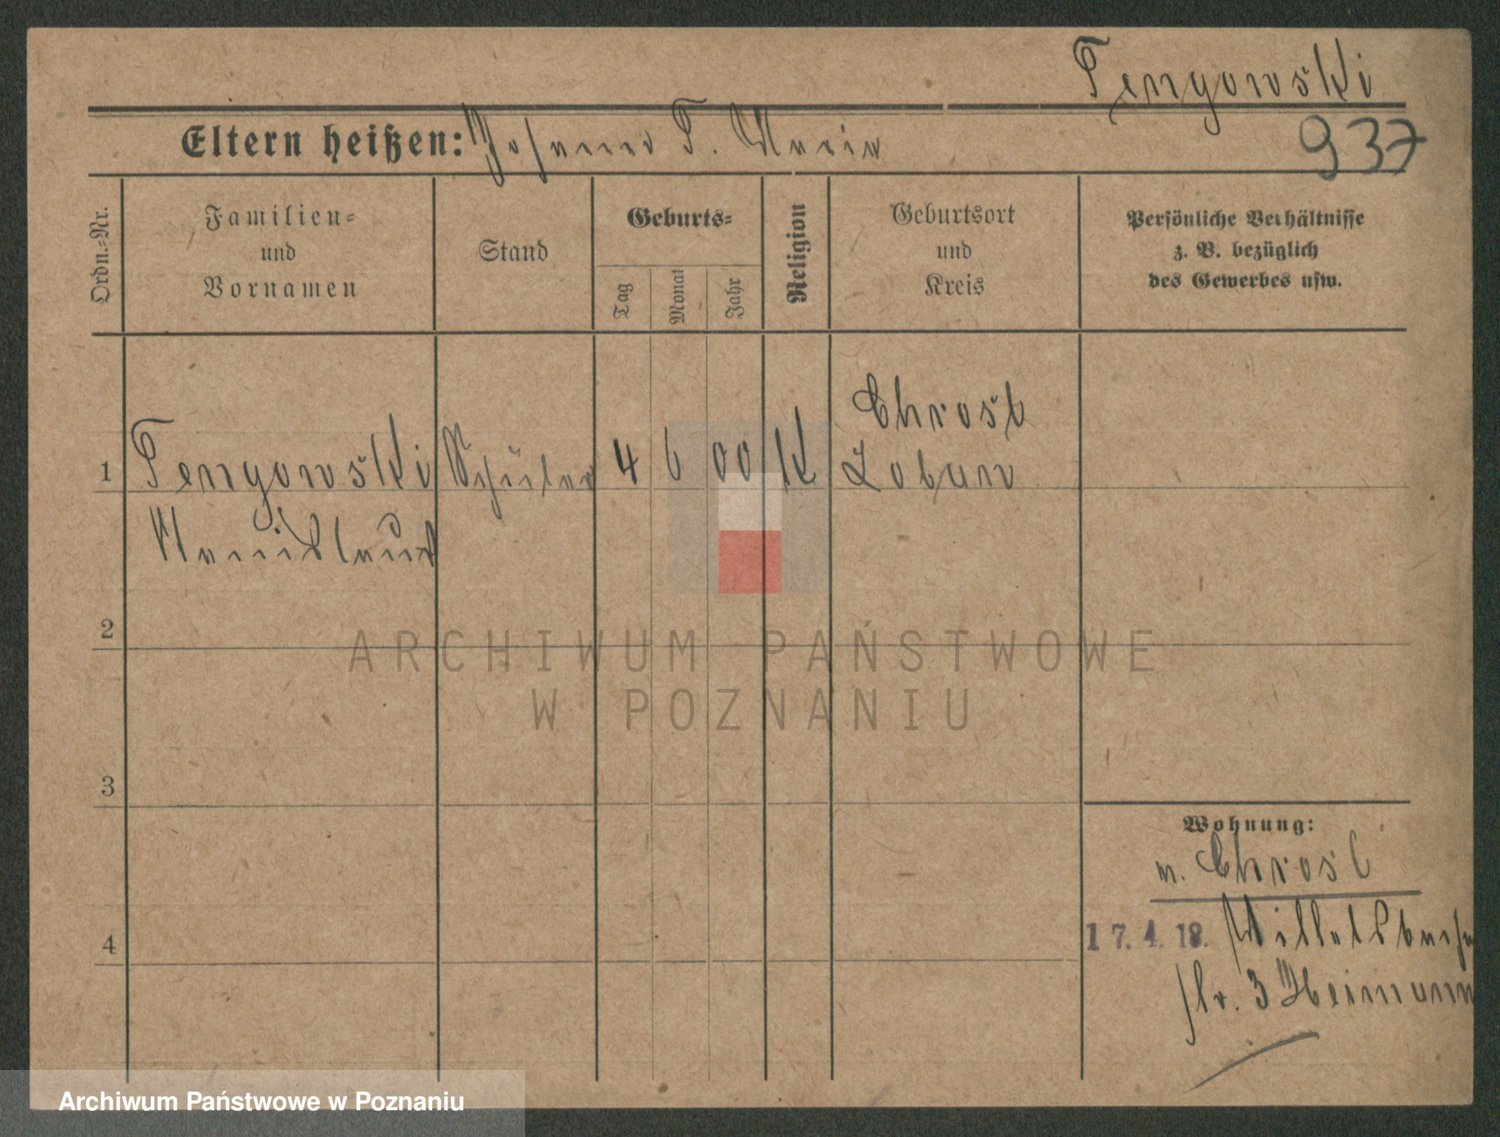 Pengowski
937
Eltern heißen: Johann P. Maria
Ordn.-Nr.
Familien-
und
Vornamen
Stand
Geburts-
Tag
Monat
Jahr
Religion
Geburtsort
und
Kreis
Persönliche Verhältnisse
z. B. bezüglich
des Gewerbes usw.
1
Pengowski
Schüler
4 6 00
K
Chrost
2
3
4
Wohnung:
n. Chrost
17. 4. 18.
str. 3 Heimann
ARCHIWUM PAŃSTWOWE
W POZNANIU
Archiwum Państwowe w Poznaniu